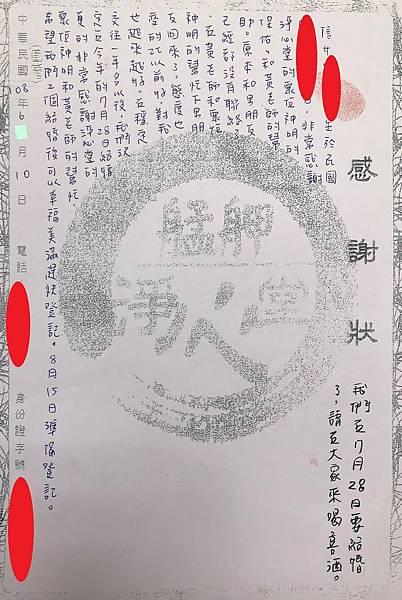 感謝狀
我們在7月28日要結婚
了,請在大家來喝喜酒。
信女 生於民國
非常感謝
淨心堂的眾位神明的
保佑、和黃老師的幫
助。原本和男朋友
已經都沒有聯絡了
在黃老師和眾位
神明的幫忙下男朋
友回來了,態度也
變的比以前好對我
也越來越好。在穩定
交往一年多以後,我們決
定在今年的7月28日結婚
真的非常感謝淨心堂的
眾位神明和黃老師的幫忙
希望我們2個結婚後可以幸福美滿趕快登記。8月15日準備登記。
中華民國 108年6月10日 電話 身份證字號
艋舺
淨心堂